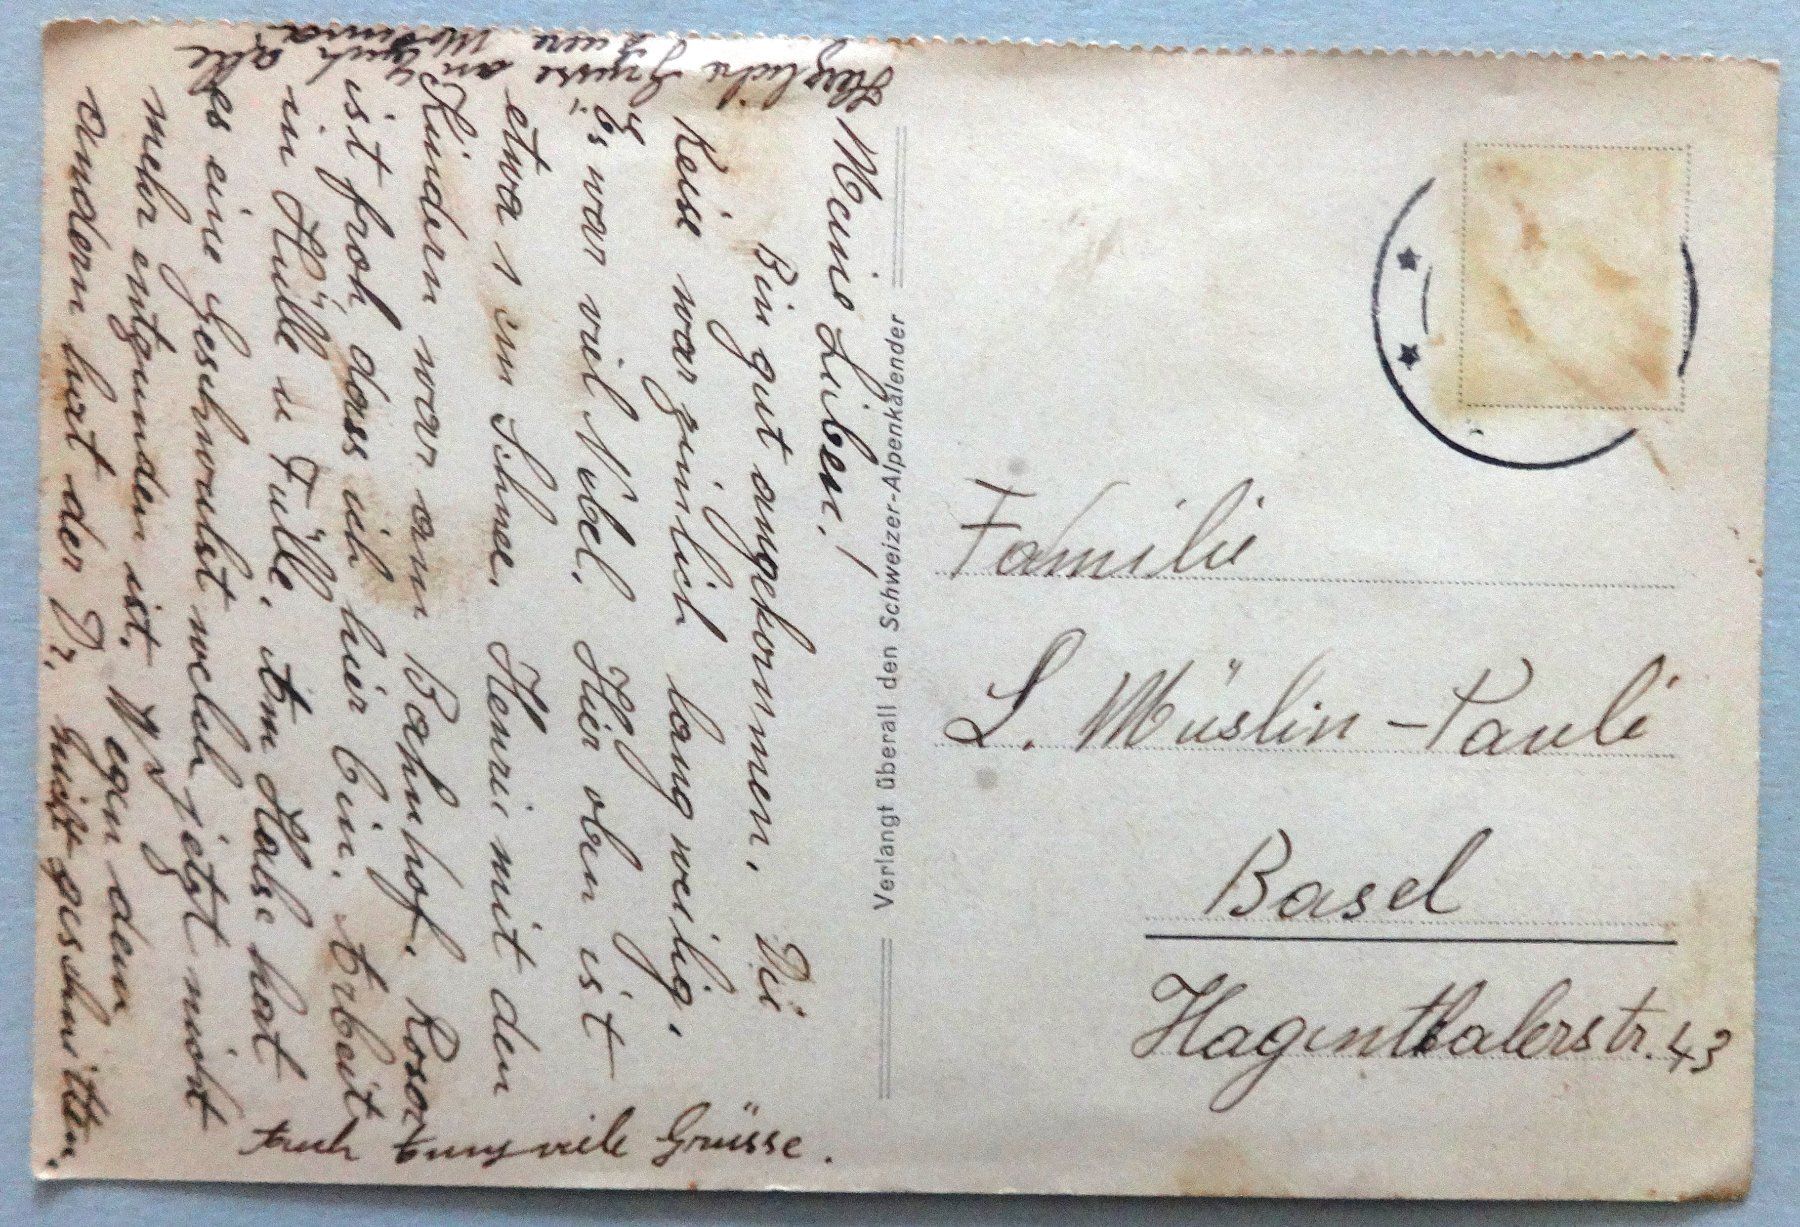 Meine Lieben!
Bin gut angekommen. Die
Reise war zimlich langweilig,
Es war viel Nebel. Hier oben ist
etwa 1 cm Schnee. Henri mit den
Kindern war am Bahnhof. Rosa
ist froh, dass ich hier bin. Arbeit
in Hülle u Fülle. Am Halse hat
es eine Geschwulst welche jetzt nicht
mehr entzunden ist.
andern hват der Dr. nicht geschnitten.
Herzliche Grüsse
an Euch alle
Eure
Auch Euny viele Grüsse.
Verlangt überall den Schweizer-Alpenkalender
Familie
L. Müslin-Pauli
Basel
Hagenthalerstr. 43